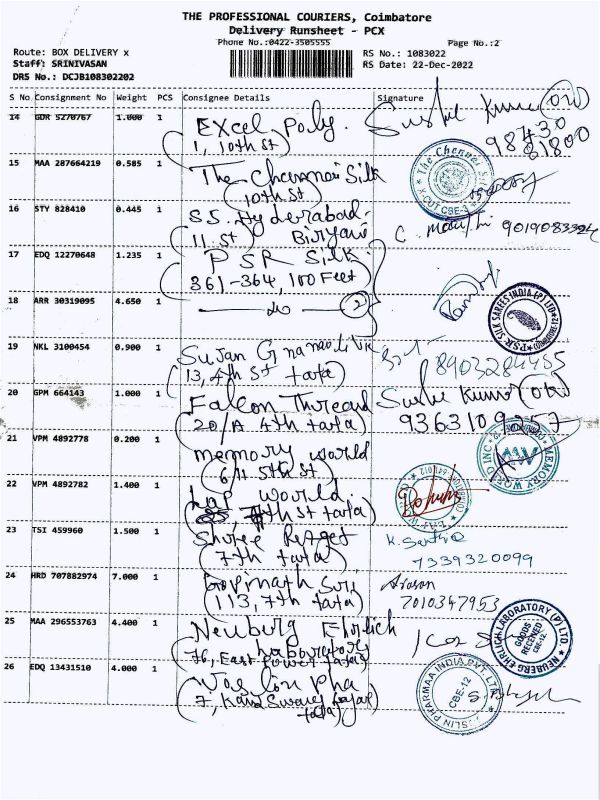 THE PROFESSIONAL COURIERS, Coimbatore
Delivery Runsheet - PCX
Phone No.:0422-3505555 Page No.:2
Route: BOX DELIVERY x RS No.: 1083022
Staff: SRINIVASAN RS Date: 22-Dec-2022
DRS No.: DCJB108302202
S No Consignment No Weight PCS Consignee Details Signature
14 GDR 5270767 1.000 1 Excel Poly.
1, 10th St
98430
81800
15 MAA 287664219 0.585 1 The Chennai Silk
10th St
16 STY 828410 0.445 1 S.S. Hyderabad
11 St Biryani
9019083324
17 EDQ 12270648 1.235 1 PSR Silk
361-364, 100 Feet
18 ARR 30319095 4.650 1 do 2
PSR SILK SAREES INDIA (P) LTD
19 NKL 3100454 0.900 1
13, 4th St tata 8903284455
20 GPM 664143 1.000 1 Falcon Thread
20/A 4th tata
21 VPM 4892778 0.200 1 memory world
6/11 5th St
MEMORY WORLD INC
22 VPM 4892782 1.400 1 Lap world
7th St tata
23 TSI 459960 1.500 1 Shree
7th tata 7339320099
24 HRD 707882974 7.000 1 Gopinath Suri
113, 7th tata 7010347953
25 MAA 296553763 4.400 1 Neuburg Ehrlich
Laboratory
76, East Power tata
NEUBERG EHRLICH LABORATORY (P) LTD.
GOODS RECEIVED CBE-12
26 EDQ 13431510 4.000 1
7,
tata
JOSLIN PHARMAA INDIA PVT. LTD
CBE-12